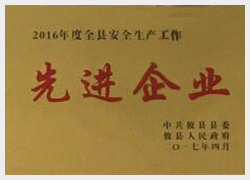 2016年度全县安全生产工作
先进企业
中共攸县县委
攸县人民政府
二〇一七年四月